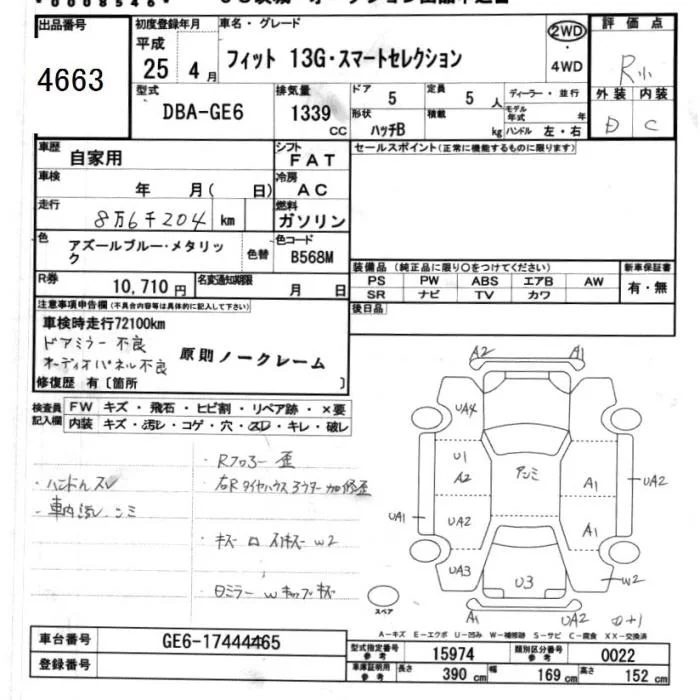 出品番号
4663
初度登録年月
平成
25 4 月
車名・グレード
フィット 13G・スマートセレクション
2WD
・
4WD
評価点
R小
外装 内装
D C
型式
DBA-GE6
排気量
1339
CC
ドア
5
定員
5 人
形状
ハッチB
積載
kg
ディーラー・並行
モデル
年式
年
ハンドル 左・右
車歴
自家用
シフト
FAT
セールスポイント(正常に機能するものに限ります)
車検
年 月( 日)
冷房
AC
走行
8万6千204 km
燃料
ガソリン
色
アズールブルー・メタリッ
ク
色替
色コード
B568M
装備品(純正品に限り○をつけてください)
PS PW ABS エアB AW
SR ナビ TV カワ
新車保証書
有・無
R券
10,710 円
名変通知期限
月 日
後日品
注意事項申告欄(不具合内容等は具体的に記入して下さい)
車検時走行72100km
ドアミラー 不良
オーディオパネル不良
原則ノークレーム
修復歴 有〔箇所 〕
検査員
記入欄
FW キズ・飛石・ヒビ割・リペア跡・×要
内装 キズ・汚レ・コゲ・穴・スレ・キレ・破レ
・ハンドルスレ
・車内汚レ シミ
・Rフロアー歪
・右Rタイヤハウスアウター加修歪
・キズ
W2
・日ミラー Wキップキズ
A2
A1
UA4
U1
A2
UA2
UA3
UA1
アンミ
A1
A1
UA2
W2
U3
A1
UA2
スペア
A-キズ E-エクボ U-凹み W-補修跡 S-サビ C-腐食 XX-交換済
車台番号
GE6-17444465
登録番号
型式指定番号
参考
15974
類別区分番号
参考
0022
車庫証明用
参考
長さ
390 cm
幅
169 cm
高さ
152 cm